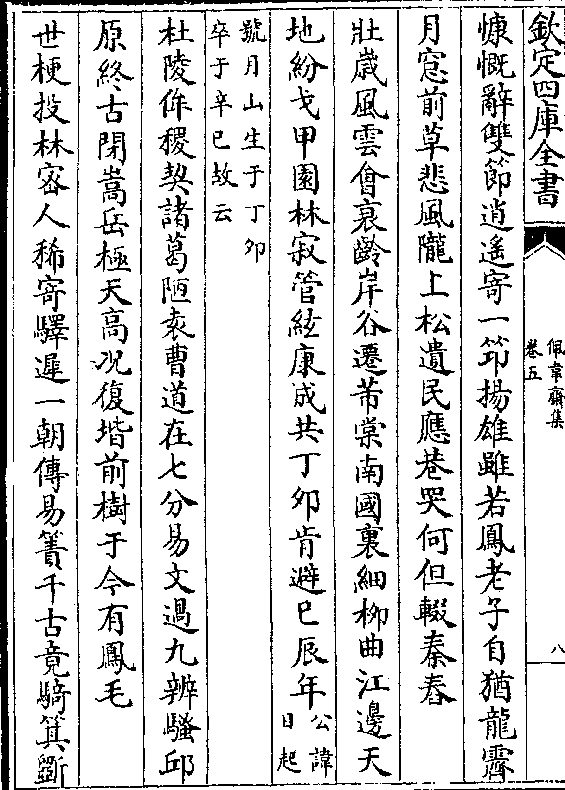 欽定四庫全書
佩韋齋集
卷五
八
慷慨辭雙節逍遙寄一笻揚雄雖若鳳老子自猶龍霽
月窓前草悲風隴上松遺民應巷哭何但輟秦舂
壯歲風雲會衰齡岸谷遷芾棠南國裏細柳曲江邊天
地紛戈甲園林寂管絃康成共丁夘肯避巳辰年公諱
日起
號月山生于丁夘
卒于辛巳故云
杜陵侔稷契諸葛陋袁曹道在七分易文過九辨騷邱
原終古閉嵩岳極天高况復堦前樹于今有鳳毛
世梗投林宻人稀寄驛遲一朝傳易簀千古竟騎箕斵